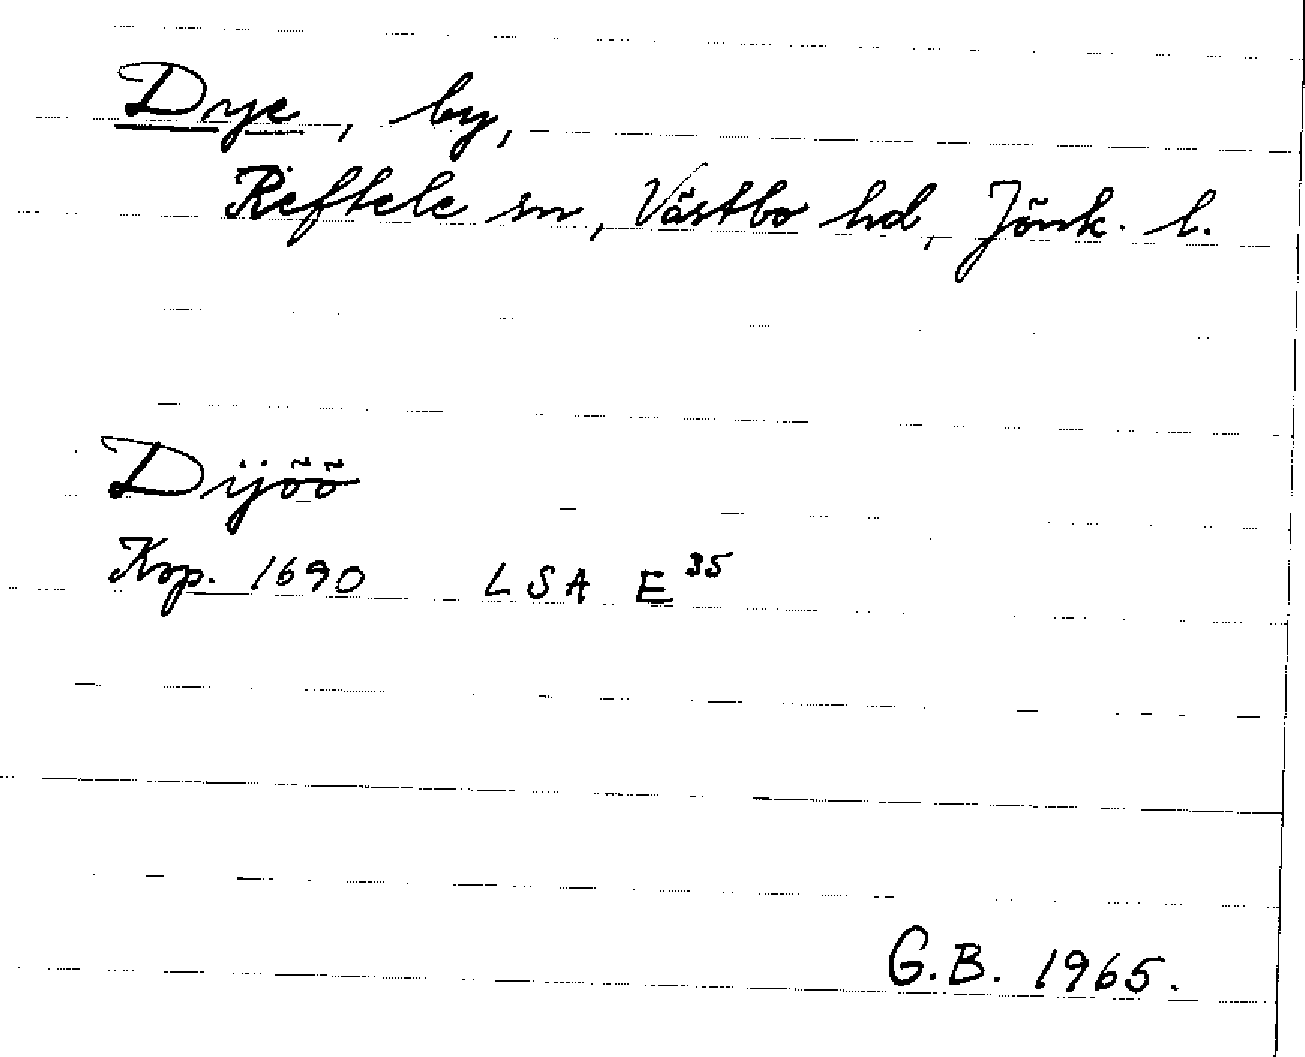 Drye, by,
Reftele sn, Västbo hd, Jönk. l.
Dijöö
Krp. 1690 LSA E 35
G.B. 1965.